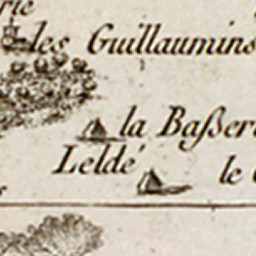 rie
les Guillaumins
la Baßer
Leldé
le